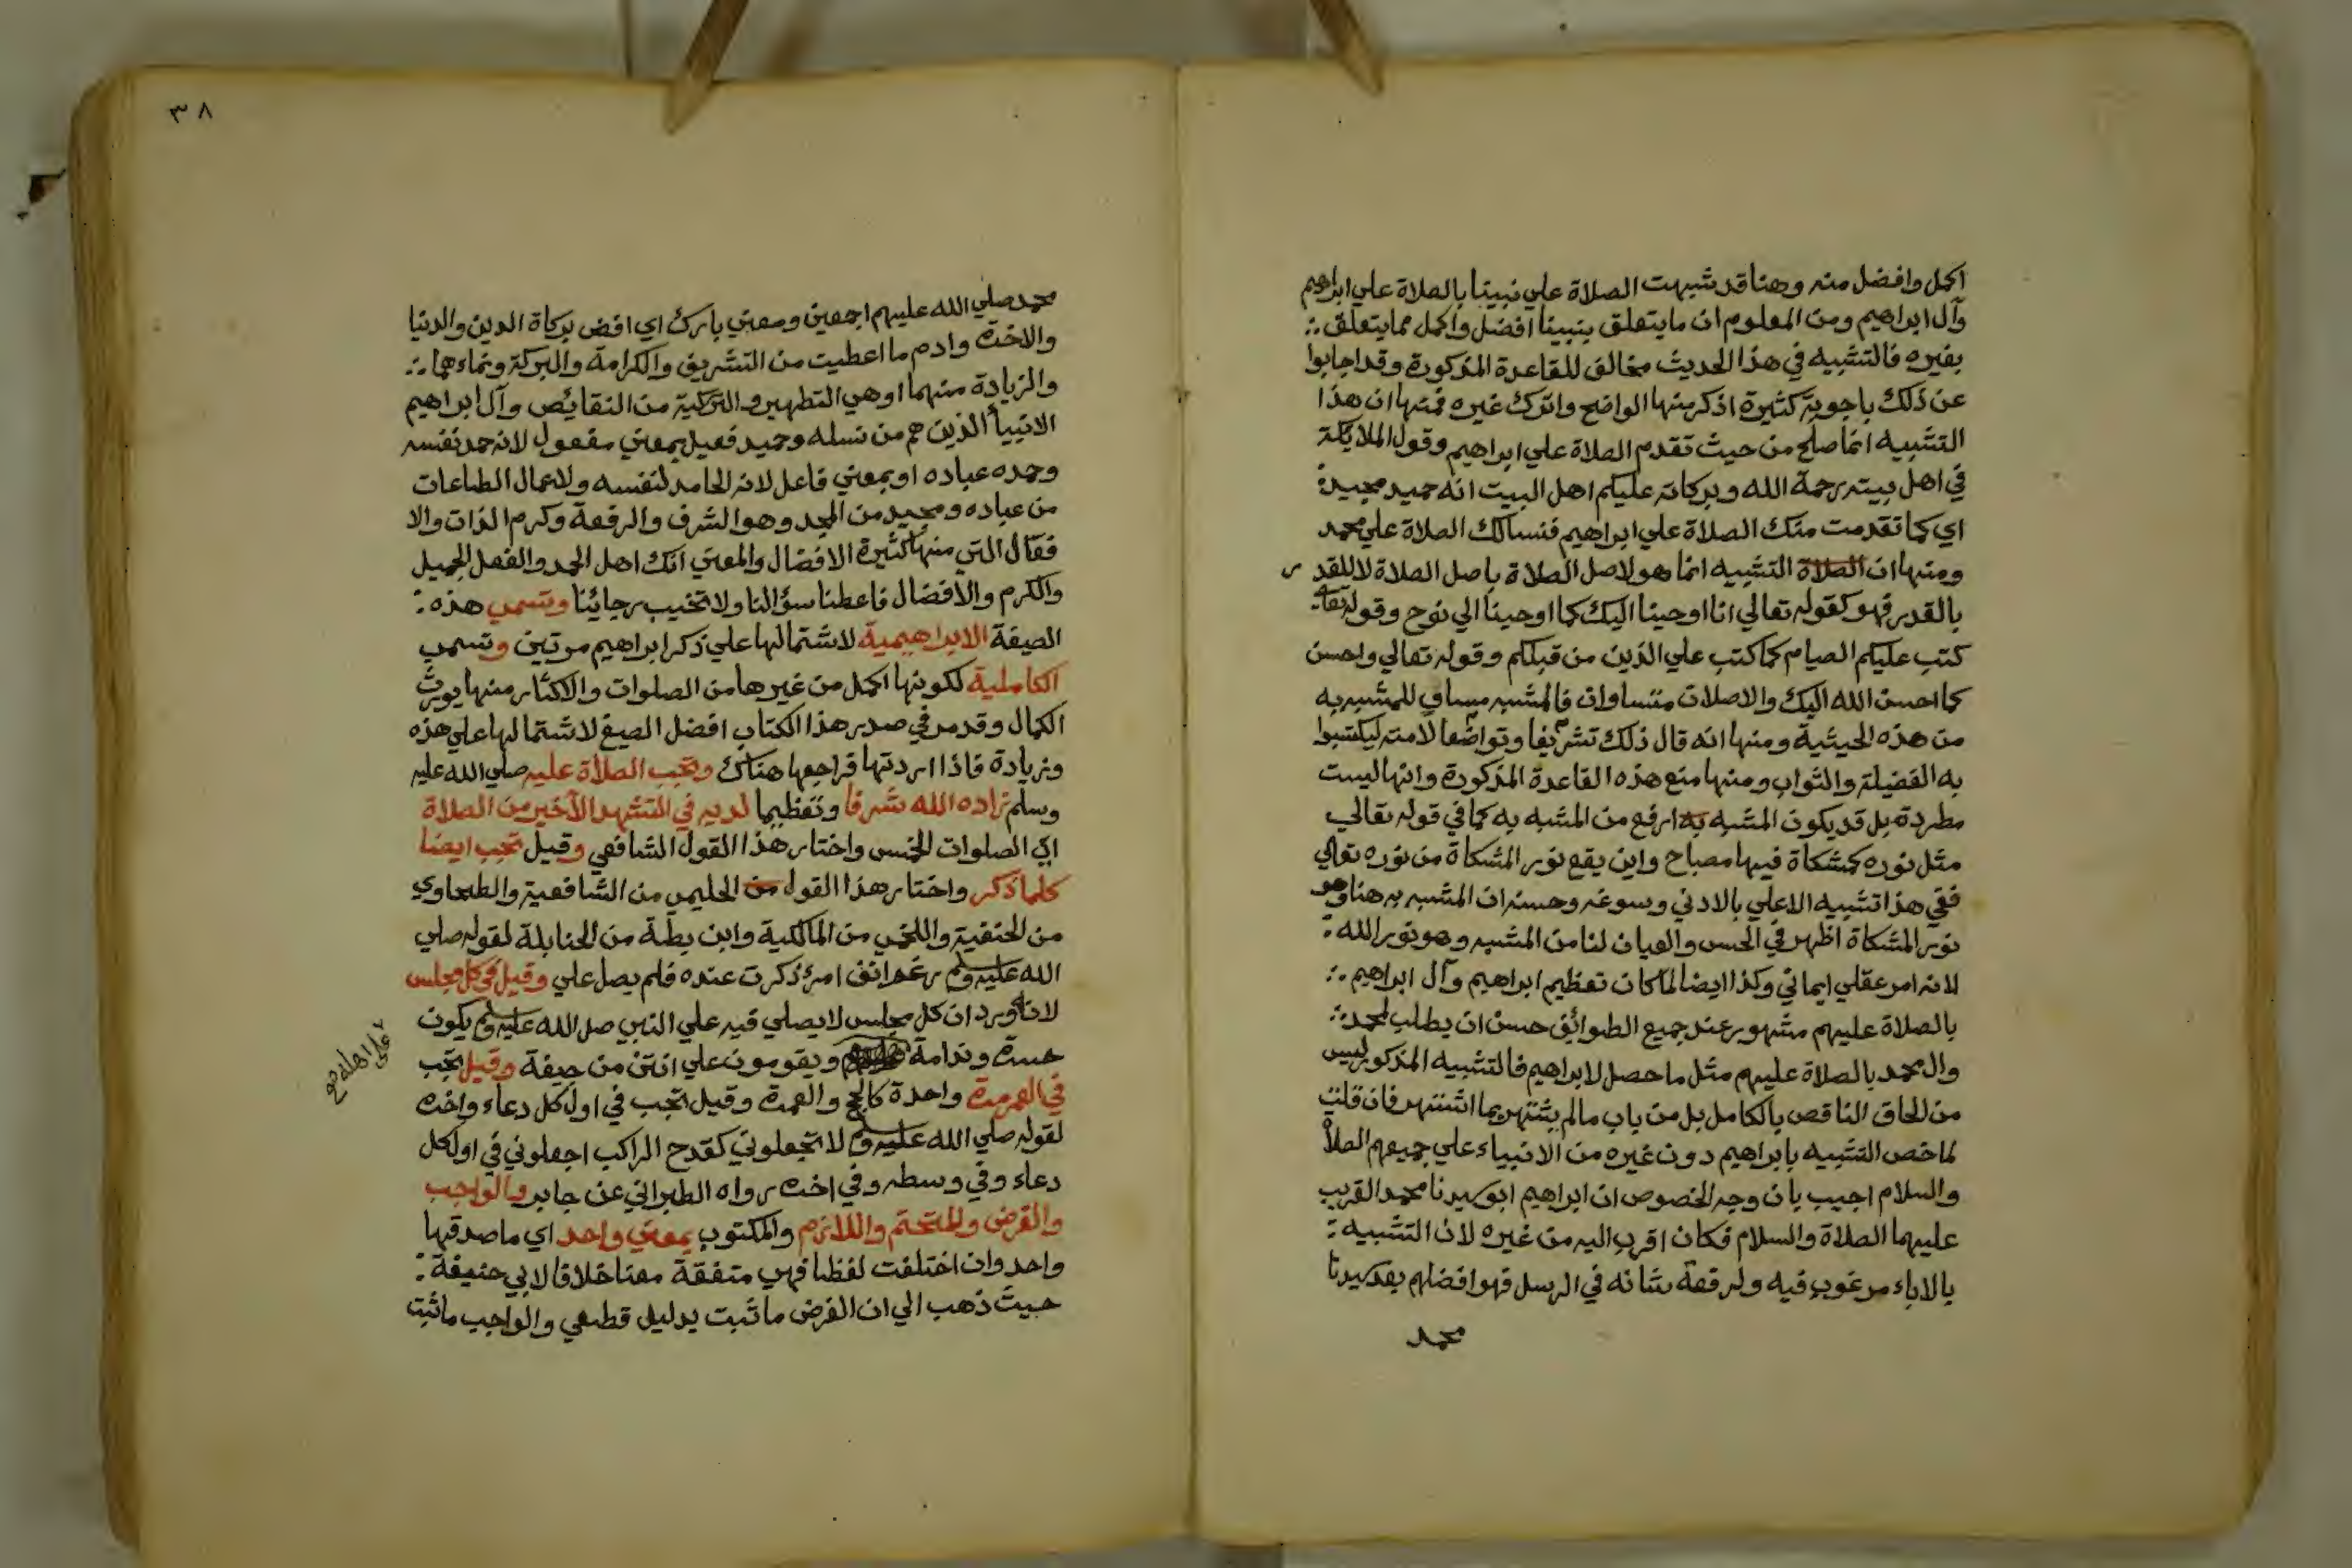 اكمل وافضل منه وهنا قد شبهت الصلاة علي نبينا بالصلاة علي ابراهيم
وآل ابراهيم ومن المعلوم ان ما يتعلق بنبينا افضل واكمل مما يتعلق
بغيره فالتشبيه في هذا الحديث مخالف للقاعدة المذكورة وقد اجابوا
عن ذلك باجوبة كثيرة اذكر منها الواضح واترك غيره فمنها ان هذا
التشبيه انما صلح من حيث تقدم الصلاة علي ابراهيم وقول الملايكة
في اهل بيته رحمة الله وبركاته عليكم اهل البيت انه حميد مجيد
اي كما تقدمت منك الصلاة علي ابراهيم فنسالك الصلاة علي محمد
ومنها ان الصلاة التشبيه انما هو لاصل الصلاة باصل الصلاة لا للقدر
بالقدر فهو كقوله تعالي انا اوحينا اليك كما اوحينا الي نوح وقوله تعا
كتب عليكم الصيام كما كتب علي الذين من قبلكم وقوله تعالي واحسن
كما احسن الله اليك والاصلان متساوان فالمشبه مساو للمشبه به
من هذه الحيثية ومنها انه قال ذلك تشريفا وتواضعا لامته ليكتسبوا
به الفضيلة والثواب ومنها منع هذه القاعدة المذكورة وانها ليست
مطردة بل قد يكون المشبه به ارفع من المشبه به كما في قوله تعالي
مثل نوره كمشكاة فيها مصباح واين يقع نور المشكاة من نوره تعالي
ففي هذا تشبيه الاعلي بالادني وسوغه وحسنه ان المشبه به هنا وهو
نور المشكاة اظهر في الحس والعيان لنا من المشبه وهو نور الله
لانه امر عقلي ايماني وكذا ايضا لما كان تعظيم ابراهيم وآل ابراهيم
بالصلاة عليهم مشهور عند جميع الطوائف حسن ان يطلب لمحمد
وال محمد بالصلاة عليهم مثل ما حصل لابراهيم فالتشبيه المذكور ليس
من الحاق الناقص بالكامل بل من باب مالم يشتهر بما اشتهر فان قلت
لما خص التشبيه بابراهيم دون غيره من الانبياء علي جميعهم الصلاة
والسلام اجيب بان وجه الخصوص ان ابراهيم ابو سيدنا محمد القريب
عليهما الصلاة والسلام فكان اقرب اليه من غيره لان التشبيه
بالاباء مرغوب فيه ولرفعة شانه في الرسل فهو افضلهم بعد سيدنا
محمد
٣٨
محمد صلي الله عليهم اجمعين ومعني بارك اي افض بركاة الدين والدنيا
والاخرة وادم ما اعطيت من التشريف والكرامة والبركة ونماءهما
والزيادة منهما او هي التطهير والتزكية من النقايص وآل ابراهيم
الانبيأ الذين هم من نسله وحميد فعيل بمعني مفعول لانه حمد نفسه
وحمده عباده او بمعني فاعل لانه الحامد لنفسه ولاعمال الطاعات
من عباده ومجيد من المجد وهو الشرف والرفعة وكرم الذات والا
فعال التي منها كثيرة الافضال والمعني انك اهل الحمد والفعل الجميل
والكرم والافضال فاعطنا سؤالنا ولا تخيب رجائنا وتسمي هذه
الصيغة الابراهيمية لاشتمالها علي ذكر ابراهيم مرتين وتسمي
الكاملية لكونها اكمل من غيرها من الصلوات والاكثار منها يورث
الكمال وقد مر في صدر هذا الكتاب افضل الصيغ لاشتمالها علي هذه
وزيادة فاذا اردتها فراجعها هناك وتجب الصلاة عليه صلي الله عليه
وسلم زاده الله شرفا وتعظيما لديه في التشهد الاخير من الصلاة
اي الصلوات الخمس واختار هذا القول الشافعي وقيل تجب ايضا
كلما ذكر واختار هذا القول من الحليمي من الشافعية والطحاوي
من الحنفية واللخمي من المالكية وابن بطة من الحنابلة لقوله صلي
الله عليه وسلم رغم انف امرئ ذكرت عنده فلم يصل علي وقيل في كل مجلس
لانه ورد ان كل مجلس لا يصلي فيه علي النبي صل الله عليه وسلم يكون
حسرة وندامة ويقومون علي انتن من جيفة وقيل تجب
علي اهله صح
في العمر مرة واحدة كالحج والعمرة وقيل تجب في اول كل دعاء واخره
لقوله صلي الله عليه وسلم لا تجعلوني كقدح الراكب اجعلوني في اول كل
دعاء وفي وسطه وفي اخره رواه الطبراني عن جابر والواجب
والفرض والمتحتم واللازم والمكتوب بمعني واحد اي ما صدقها
واحد وان اختلفت لفظا فهي متفقة معنا خلافا لابي حنيفة
حيث ذهب الي ان الفرض ما ثبت بدليل قطعي والواجب ما ثبت